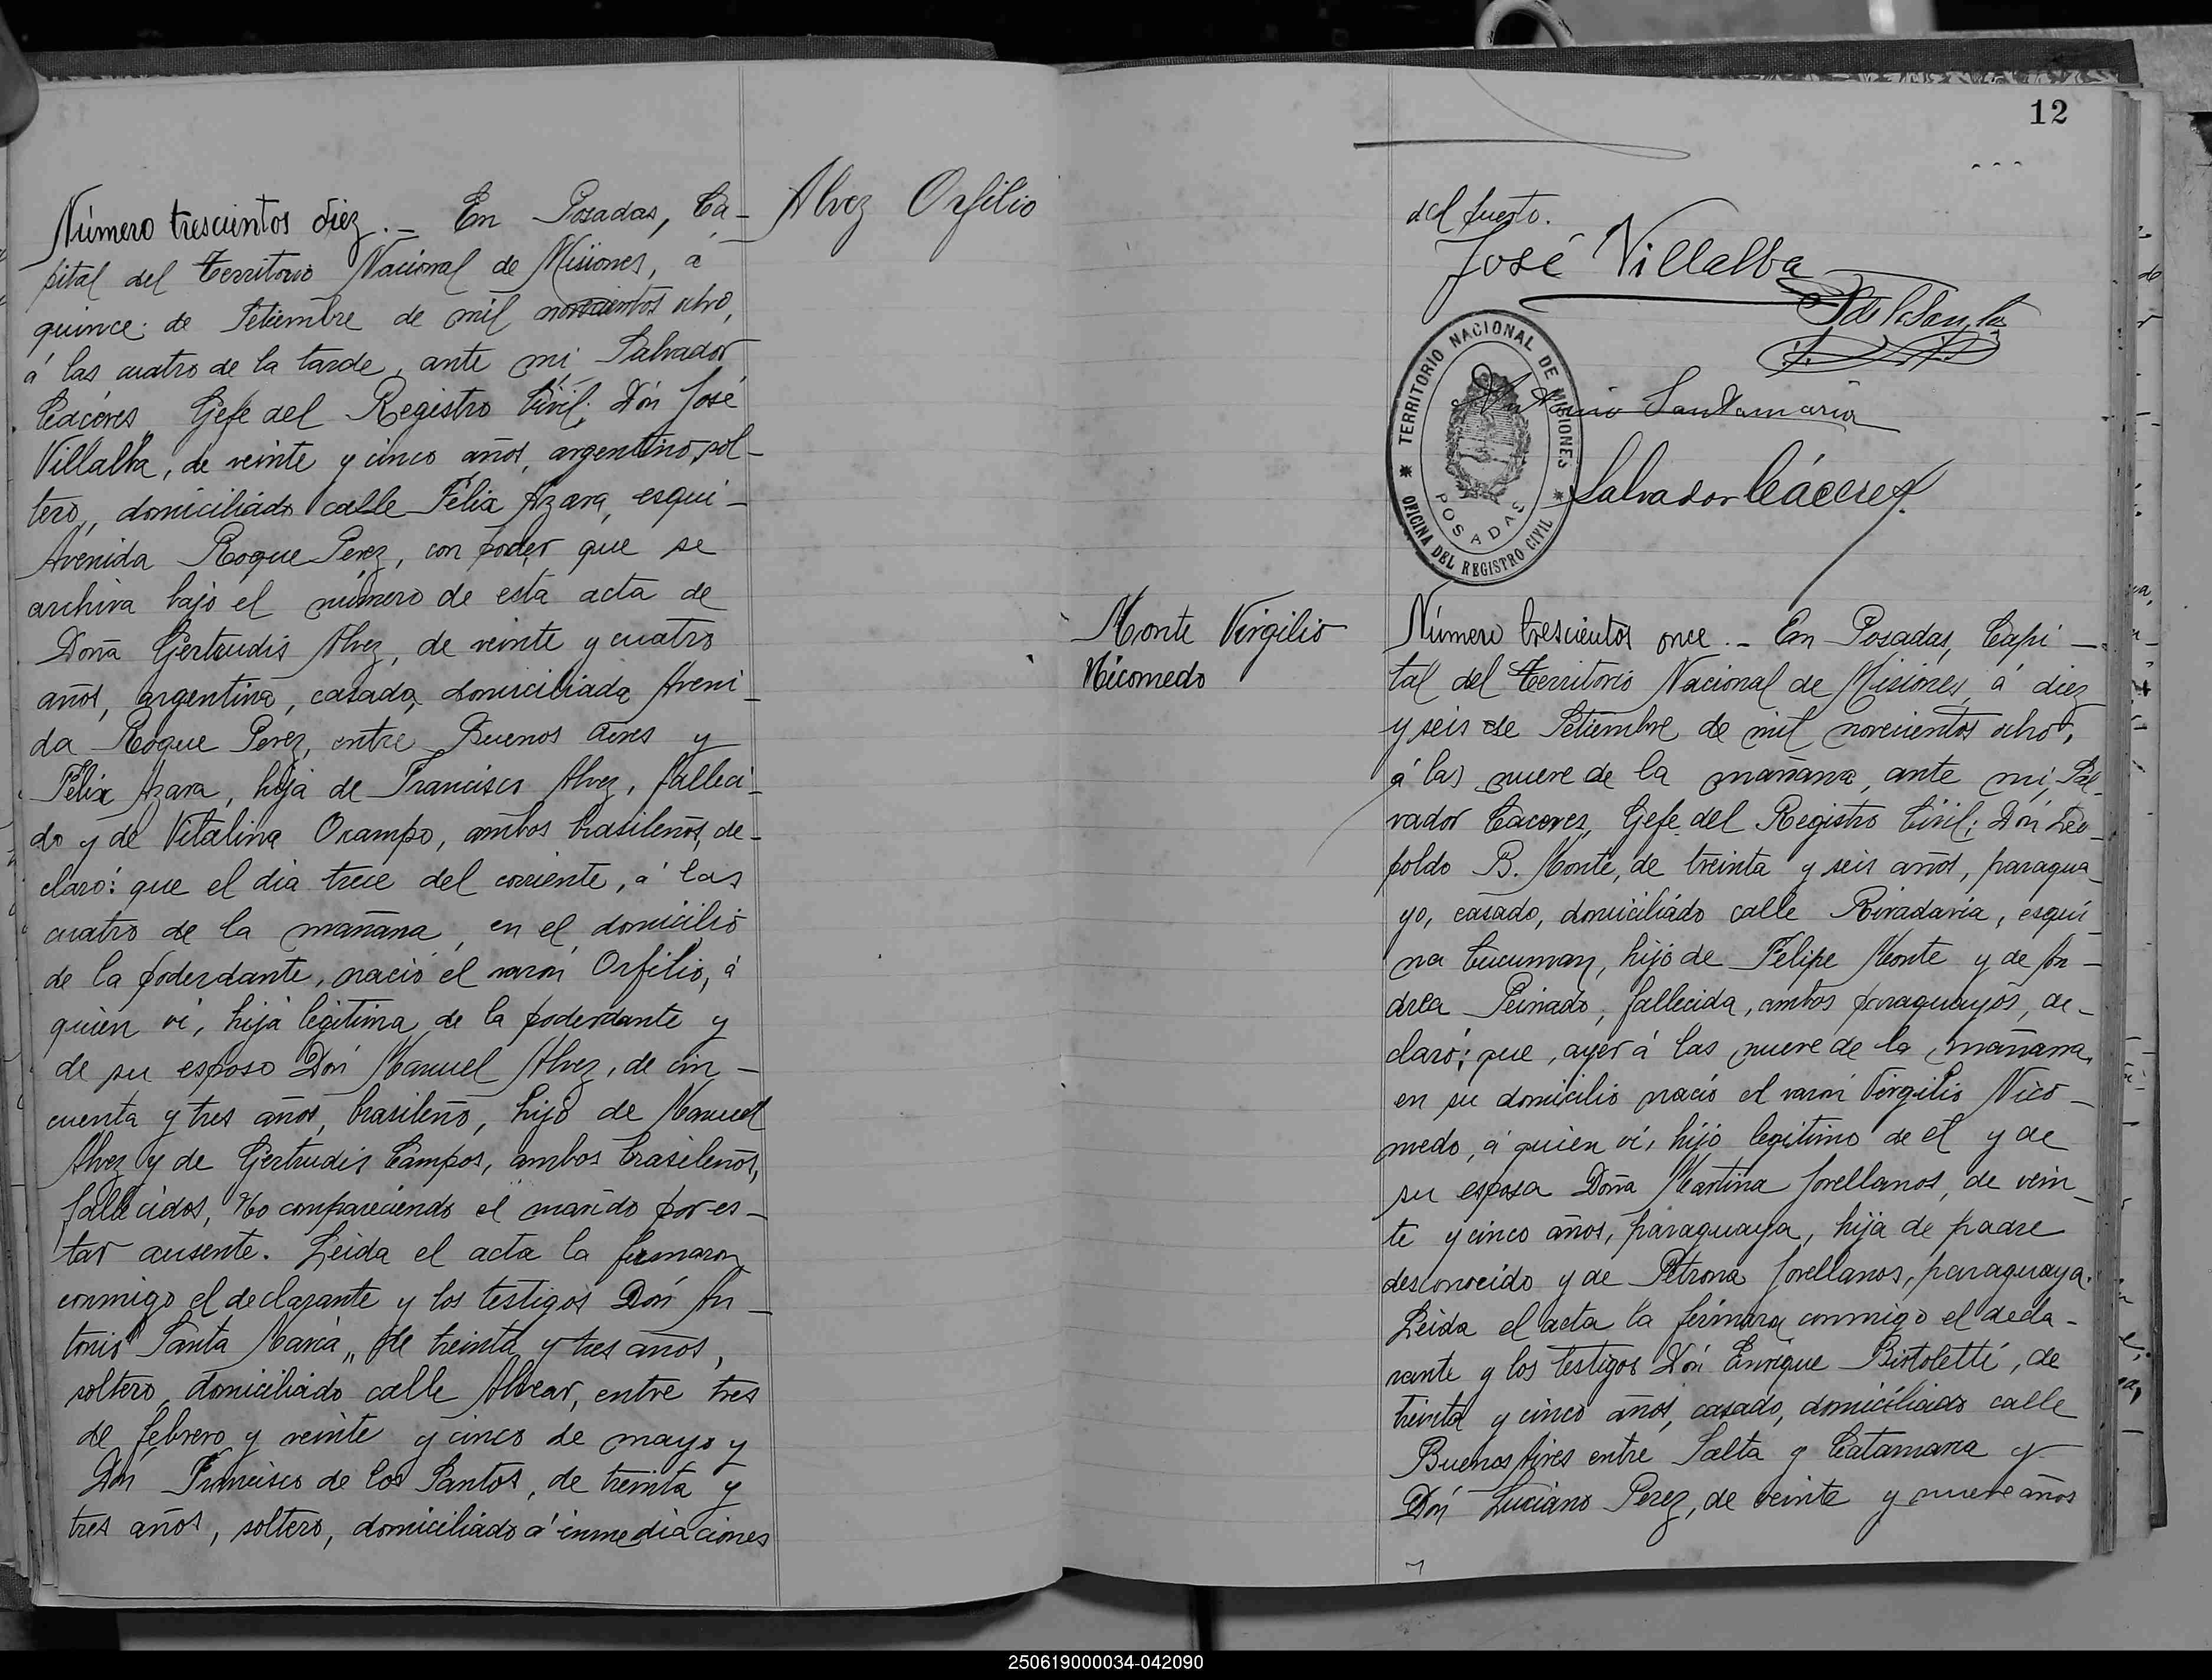 Alvez Orfilio
Número trescientos diez.- En Posadas, Ca-
pital del Territorio Nacional de Misiones, á
quince de Setiembre de mil novecientos ocho,
á las cuatro de la tarde, ante mi, Salvador
Cáceres, Gefe del Registro Civil; Dón José
Villalba, de veinte y cinco años, argentino, sol-
tero, domiciliado calle Félix Azara, esqui-
Avenida Roque Perez, con poder que se
archiva bajo el número de esta acta de
Doña Gertrudis Alvez, de veinte y cuatro
años, argentina, casada, domiciliada Aveni-
da Roque Perez, entre Buenos Aires y
Félix Azara, hija de Francisco Alvez, falleci-
do y de Vitalina Ocampo, ambos brasileños, de-
claró: que el dia trece del corriente, á las
cuatro de la mañana, en el domicilio
de la poderdante, nació el varón Orfilio, á
quien vi, hijo legitimo de la poderdante y
de su esposo Dón Manuel Alvez, de cin-
cuenta y tres años, brasileño, hijo de Manuel
Alvez y de Gertrudis Campos, ambos brasileños,
fallecidos, No compareciendo el marido por es-
tar ausente. Leida el acta la firmaron
conmigo el declarante y los testigos Dón An-
tonio Santa María, de treinta y tres años,
soltero, domiciliado calle Alvear, entre tres
de febrero y veinte y cinco de mayo y
Dón Francisco de los Santos, de treinta y
tres años, soltero, domiciliado á inmediaciones
12
del puerto.
José Villalba
Antonio Santamaria
Salvador Cáceres
TERRITORIO NACIONAL DE MISIONES
POSADAS
OFICINA DEL REGISTRO CIVIL
Monte Virgilio
Nicomedo
Número trescientos once.- En Posadas, Capi-
tal del Territorio Nacional de Misiones, á diez
y seis de Setiembre de mil novecientos ocho,
á las nueve de la mañana, ante mi, Sal-
vador Caceres, Gefe del Registro Civil; Dón Leo-
poldo B. Monte, de treinta y seis años, paragua-
yo, casado, domiciliado calle Rivadavia, esqui-
na Tucuman, hijo de Felipe Monte y de An-
drea Peinado, fallecida, ambos paraguayos, de-
claró; que, ayer á las nueve de la mañana,
en su domicilio nació el varón Virgilio Nico-
medo, á quien vi, hijo legitimo de el y de
su esposa Doña Martina Jovellanos, de vein-
te y cinco años, paraguaya, hija de padre
desconocido y de Petrona Jovellanos, paraguaya.
Leida el acta la firmara conmigo el decla-
rante y los testigos Dón Enrique Bistoletti, de
treinta y cinco años, casado, domiciliado calle
Buenos Aires entre Salta y Catamarca y
Dón Luciano Perez, de veinte y nueve años
250619000034-042090